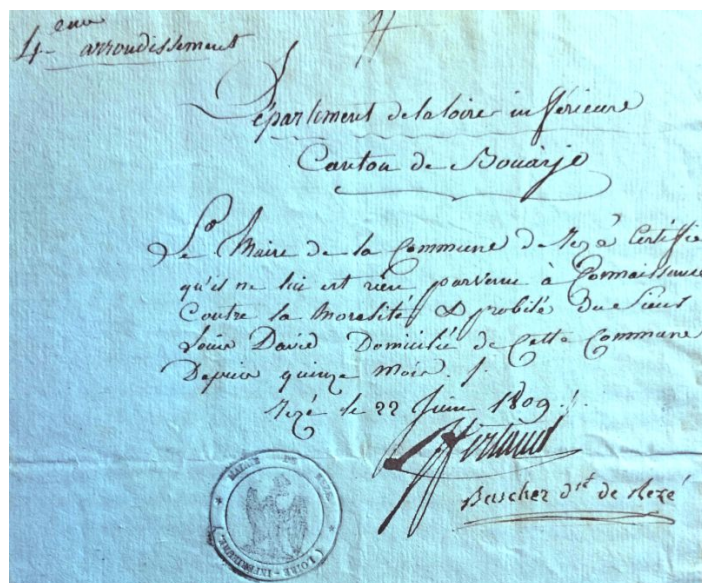 4eme arrondissement
Département de la loire inférieure
Canton de Bouaye
Le Maire de la Commune de Rezé Certifie
qu'il ne lui est rien parvenu à Connaissance
Contre la Moralité & probité du Sieur
Louis David Domicilié de Cette Commune
Depuis quinze Mois ./.
Rezé le 22 Juin 1809 ./.
de Rezé
MAIRIE DE REZÉ
(LOIRE-INFERIEURE)